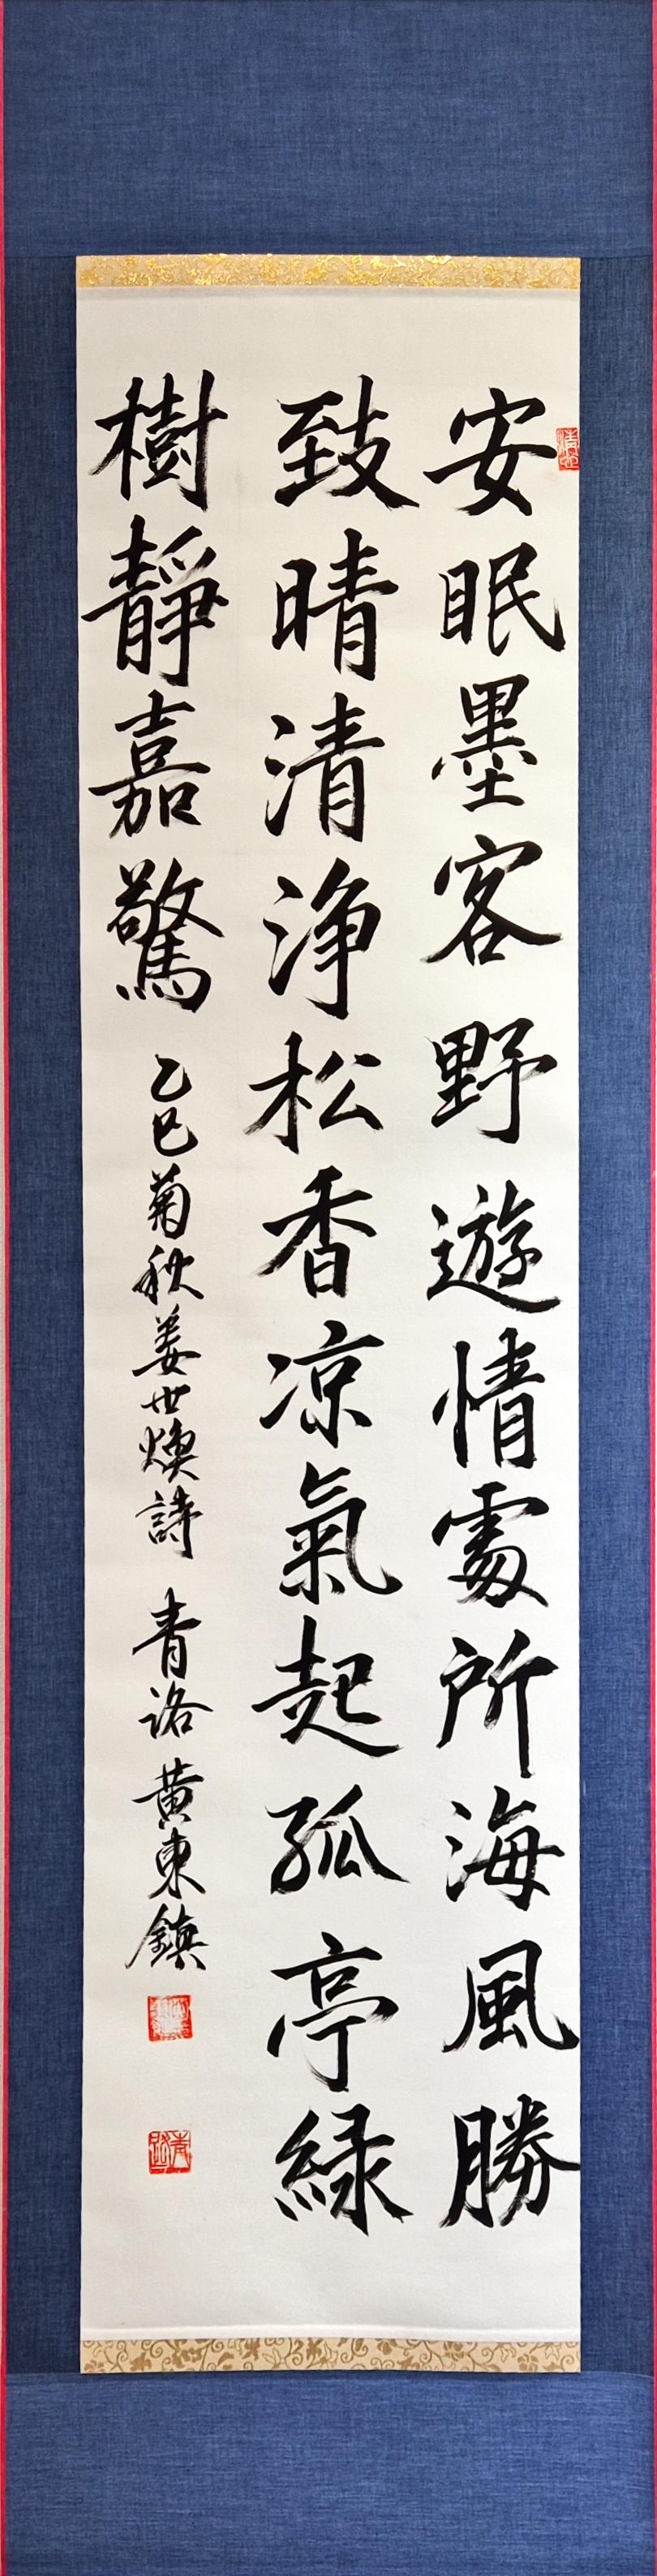 安眠墨客野遊情處所海風勝
致晴清浄松香凉氣起孤亭緑
樹靜嘉驚 乙巳菊秋姜世煥詩 青洛 黄東鎮